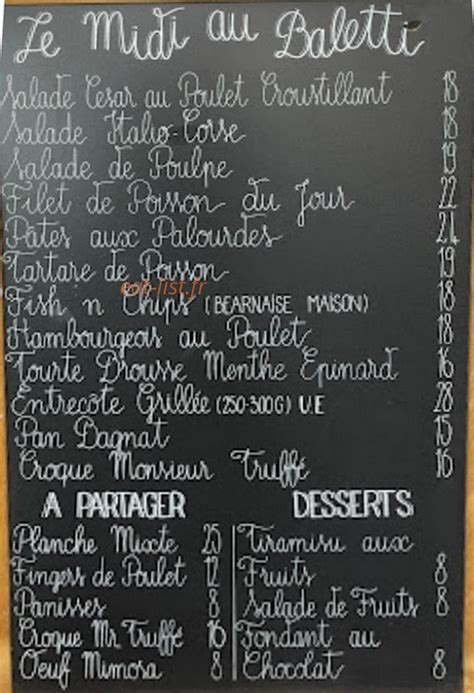 Le Midi au Baletti
Salade Cesar au Poulet Croustillant 18
Salade Italio-Corse 18
Salade de Poulpe 19
Filet de Poisson du Jour 22
Pâtes aux Palourdes 24
Tartare de Poisson 19
eat-list.fr
Fish n Chips (BEARNAISE MAISON) 18
Hambourgeois au Poulet 18
Tourte Brousse Menthe Epinard 16
Entrecôte Grillée (250-300G) U.E 28
Pan Bagnat 15
Croque Monsieur Truffé 16
A PARTAGER
Planche Mixte 25
Fingers de Poulet 12
Panisses 8
Croque Mr Truffé 16
Oeuf Mimosa 8
DESSERTS
Tiramisu aux
Fruits 8
Salade de Fruits 8
Fondant au
Chocolat 8